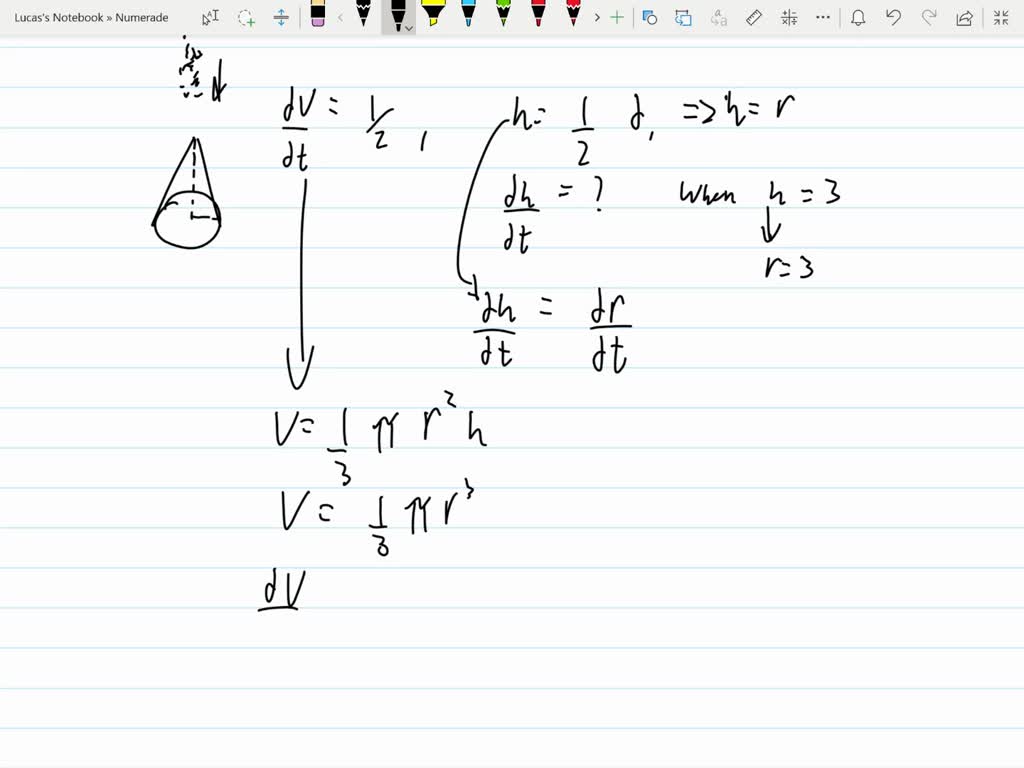 Lucas's Notebook » Numerade
dV/dt = 1/2 , h = 1/2 d, => h = r
dh/dt = ? when h = 3
r = 3
dh/dt = dr/dt
V = 1/3 π r² h
V = 1/3 π r³
dV